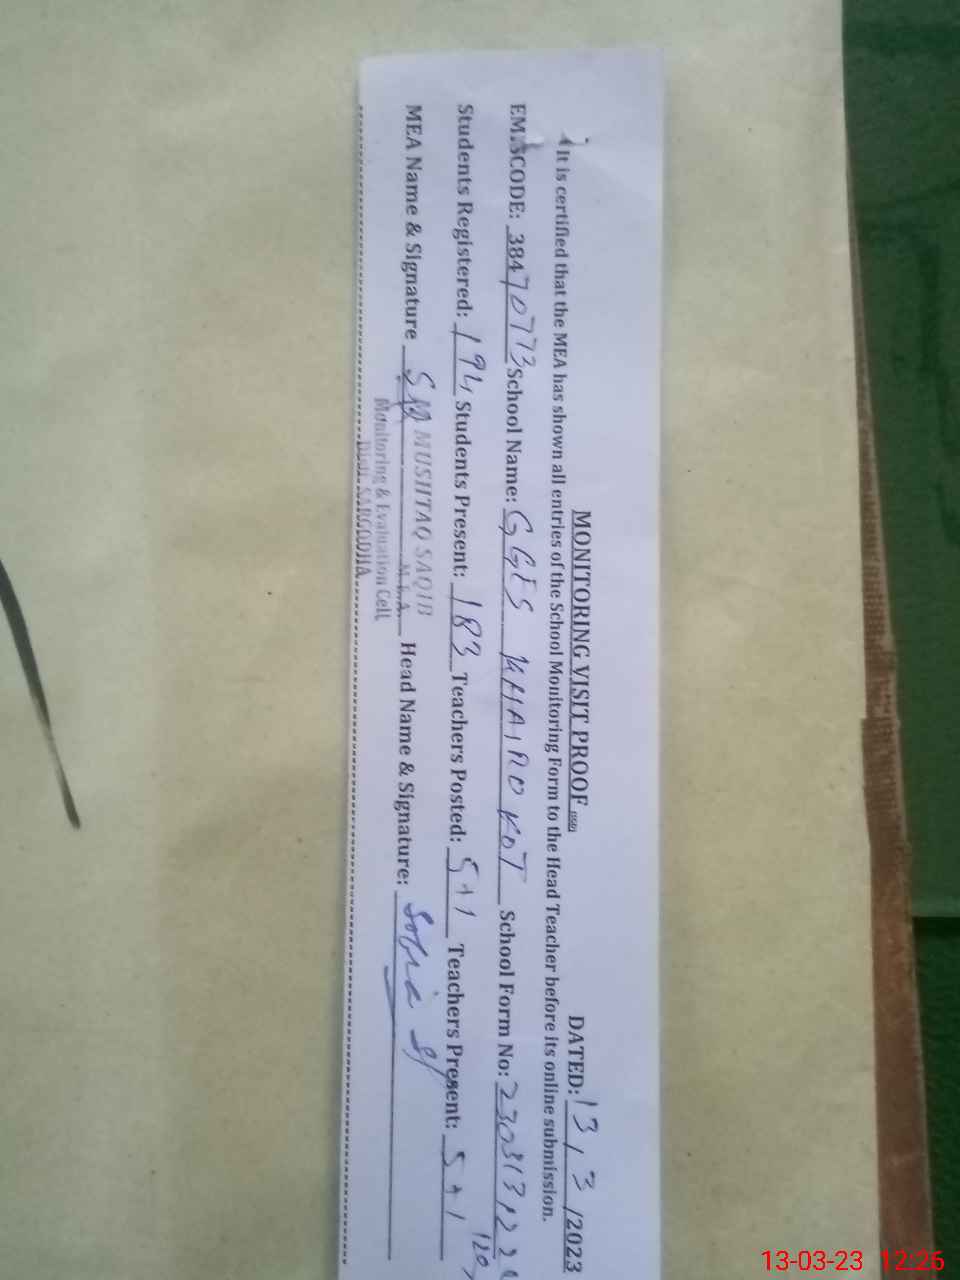 MONITORING VISIT PROOF (SSD) DATED: 13/3/2023
It is certified that the MEA has shown all entries of the School Monitoring Form to the Head Teacher before its online submission.
EMISCODE: 38470773 School Name: GGES KHAIRO KOT School Form No:
Students Registered: 194 Students Present: 183 Teachers Posted: 5+1 Teachers Present: 5+1
MEA Name & Signature MUSHTAQ SAQIB Head Name & Signature: Sobia
M.E.A.
Monitoring & Evaluation Cell
SARGODHA
13-03-23 12:26